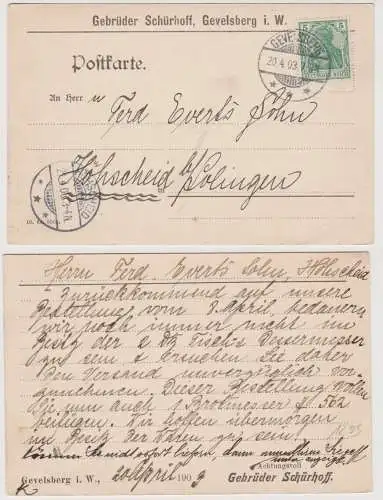 Gebrüder Schürhoff, Gevelsberg i. W.
GEVELSBERG
20.4.03.
5 5
Postkarte.
An Herr n
Ferd Everts Sohn
Höhscheid b/ Solingen
Herrn Ferd. Everts Sohn, Höhscheid
Zurückkommend auf unsere
Bestellung vom 8. April, bedauern
wir noch immer nicht im
Besitz der 2 Dtz Tisch & Dessertmesser
zu sein & ersuchen Sie daher
den Versand unverzüglich vor-
zunehmen. Dieser Bestellung wollen
Sie nun auch 1 Brotmesser # 562
beifügen. Wir hoffen übermorgen
im Besitz der Waren zu sein.
dann
Achtungsvoll
Gevelsberg i. W., 20 April 1903 Gebrüder Schürhoff.